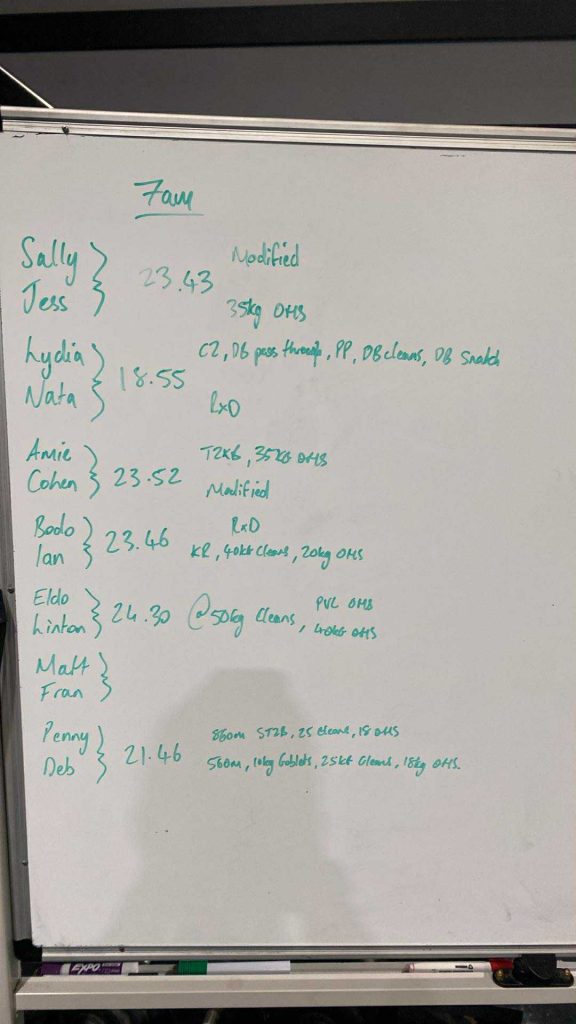 7am
Sally
Jess
23.43
Modified
35kg OHS
Lydia
Nata
18.55
C2, DB pass through, PP, DB cleans, DB Snatch
RxD
Amie
Cohen
23.52
T2KB, 35KG OHS
Modified
Bodo
Ian
23.46
RxD
KR, 40KG Cleans, 20kg OHS
Eldo
Linton
24.30
@50kg Cleans,
PVC OHS
40KG OHS
Matt
Fran
Penny
Deb
21.46
ST2B, 25 Cleans, 18 OHS
500m, 10kg Goblets, 25KG Cleans, 18kg OHS.
EXPO